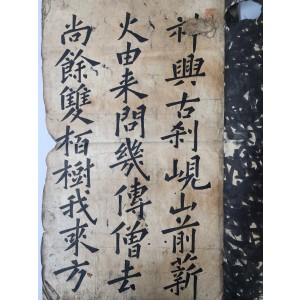 神興古刹峴山前薪
火由来問幾傳僧去
尚餘雙栢樹我來方